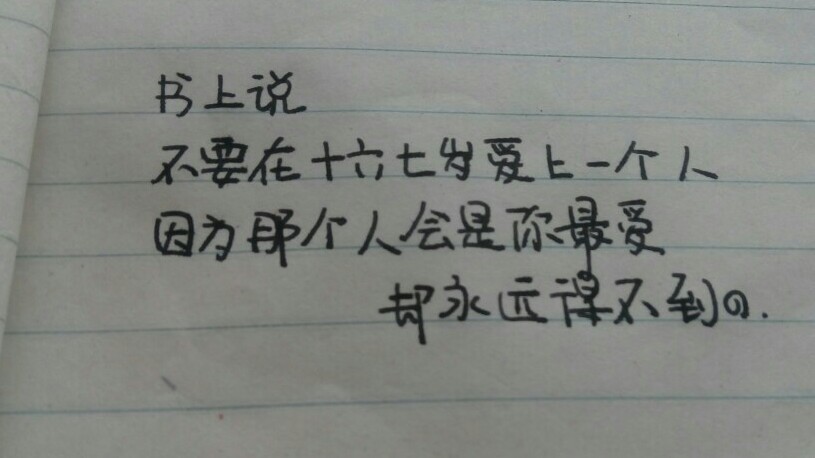 书上说
不要在十六七岁爱上一个人
因为那个人会是你最爱
却永远得不到の.